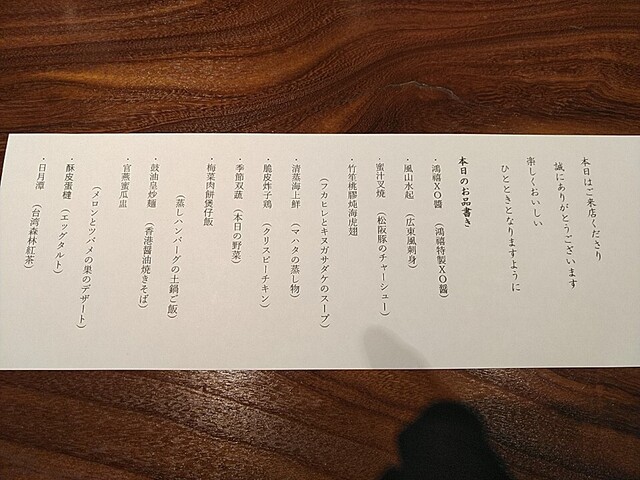 本日はご来店くださり
誠にありがとうございます
楽しくおいしい
ひとときとなりますように
本日のお品書き
・鴻禧XO醬 (鴻禧特製XO醬)
・風山水起 (広東風刺身)
・蜜汁叉焼 (松阪豚のチャーシュー)
・竹笙桃膠炖海虎翅
(フカヒレとキヌガサダケのスープ)
・清蒸海上鮮 (マハタの蒸し物)
・脆皮炸子鶏 (クリスピーチキン)
・季節双蔬 (本日の野菜)
・梅菜肉餅煲仔飯
(蒸しハンバーグの土鍋ご飯)
・豉油皇炒麺 (香港醤油焼きそば)
・官燕蜜瓜盅
(メロンとツバメの巣のデザート)
・酥皮蛋撻 (エッグタルト)
・日月潭 (台湾森林紅茶)